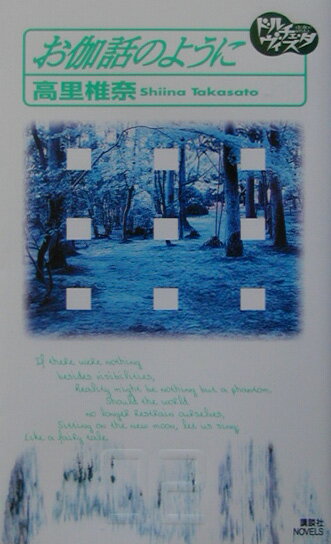 お伽話のように
ドルチェ・
ヴィスタ
高里椎奈 Shiina Takasato
If there were nothing
besides visibilities,
Reality might be nothing but a phantom.
Should the world
no longer restrain ourselves,
Sitting on the new moon, let us sing
Like a fairy tale.
講談社
NOVELS